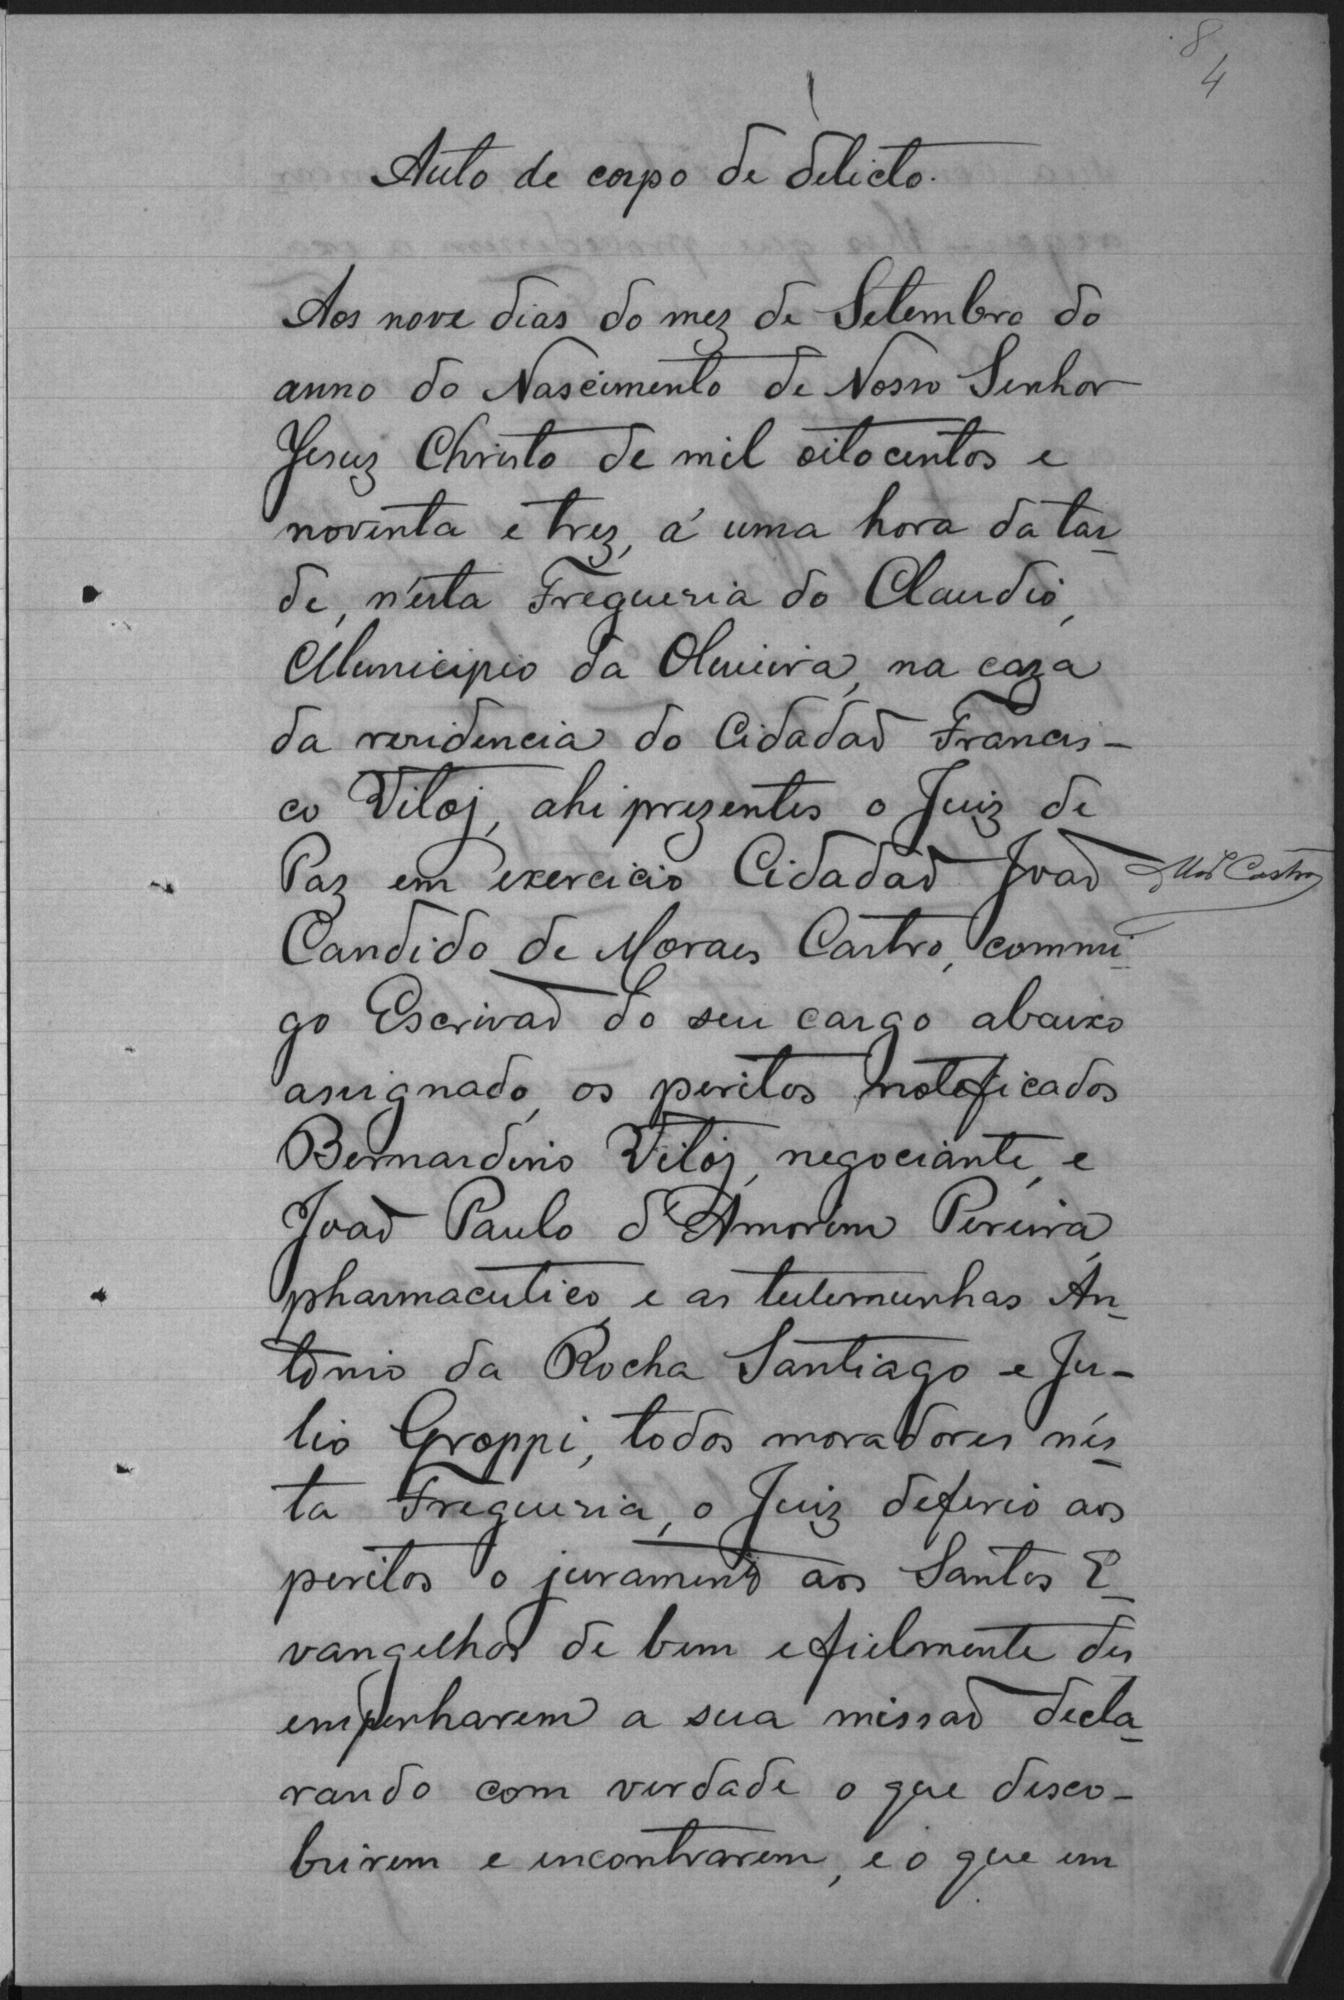 8
4
Auto de corpo de delicto.
Aos nove dias do mez de Setembro do
anno do Nascimento de Nosso Senhor
Jesuz Christo de mil oitocentos e
noventa e trez, á uma hora da tar_
de, n'esta Freguesia do Claudio,
Municipio da Oliveira, na caza
da residencia do Cidadaõ Francis-
co Vitoj, ahi prezentes o Juiz de
Paz em exercicio Cidadaõ Joaõ
Castro
Candido de Moraes Castro, commi_
go Escrivaõ do seu cargo abaixo
assignado, os peritos notoficados
Bernardino Vitoj, negociante, e
Joaõ Paulo d'Amorim Pereira,
pharmaceutico, e as testemunhas An_
tonio da Rocha Santiago e Ju-
lio Groppi, todos moradores nés_
ta Freguesia, o Juiz deferio aos
peritos o juramento aos Santos E_
vangelhos de bem e fielmente des
empenharem a sua missaõ decla_
rando com verdade o que desco-
brirem e encontrarem, e o que em